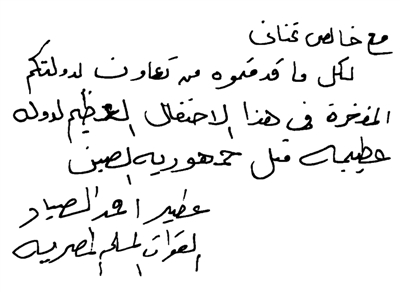 مع خالص تمنياتى
لكل ما قدمتموه من تعاون لدولتكم
المفخرة فى هذا الاحتفال العظيم لدوله
عظيمه مثل جمهوريه الصين
عطير احمد الصياد
القوات المسلحه المصريه